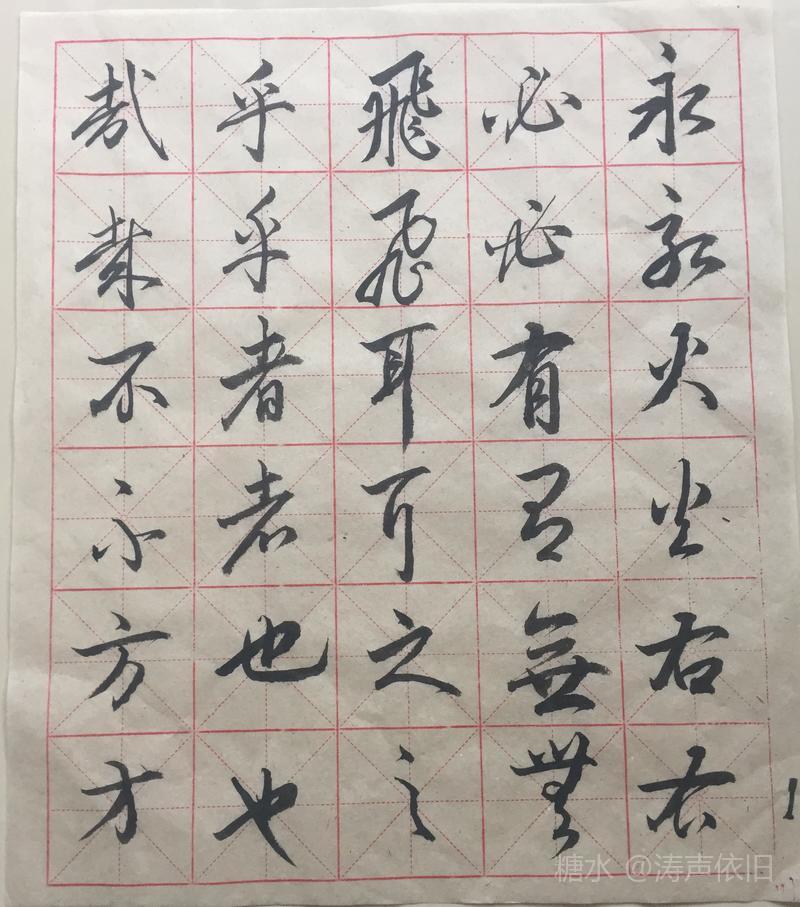 永永火火右右
必必有有無無
飛飛耳耳之之
乎乎者者也也
哉哉不不方方
糖水 @涛声依旧